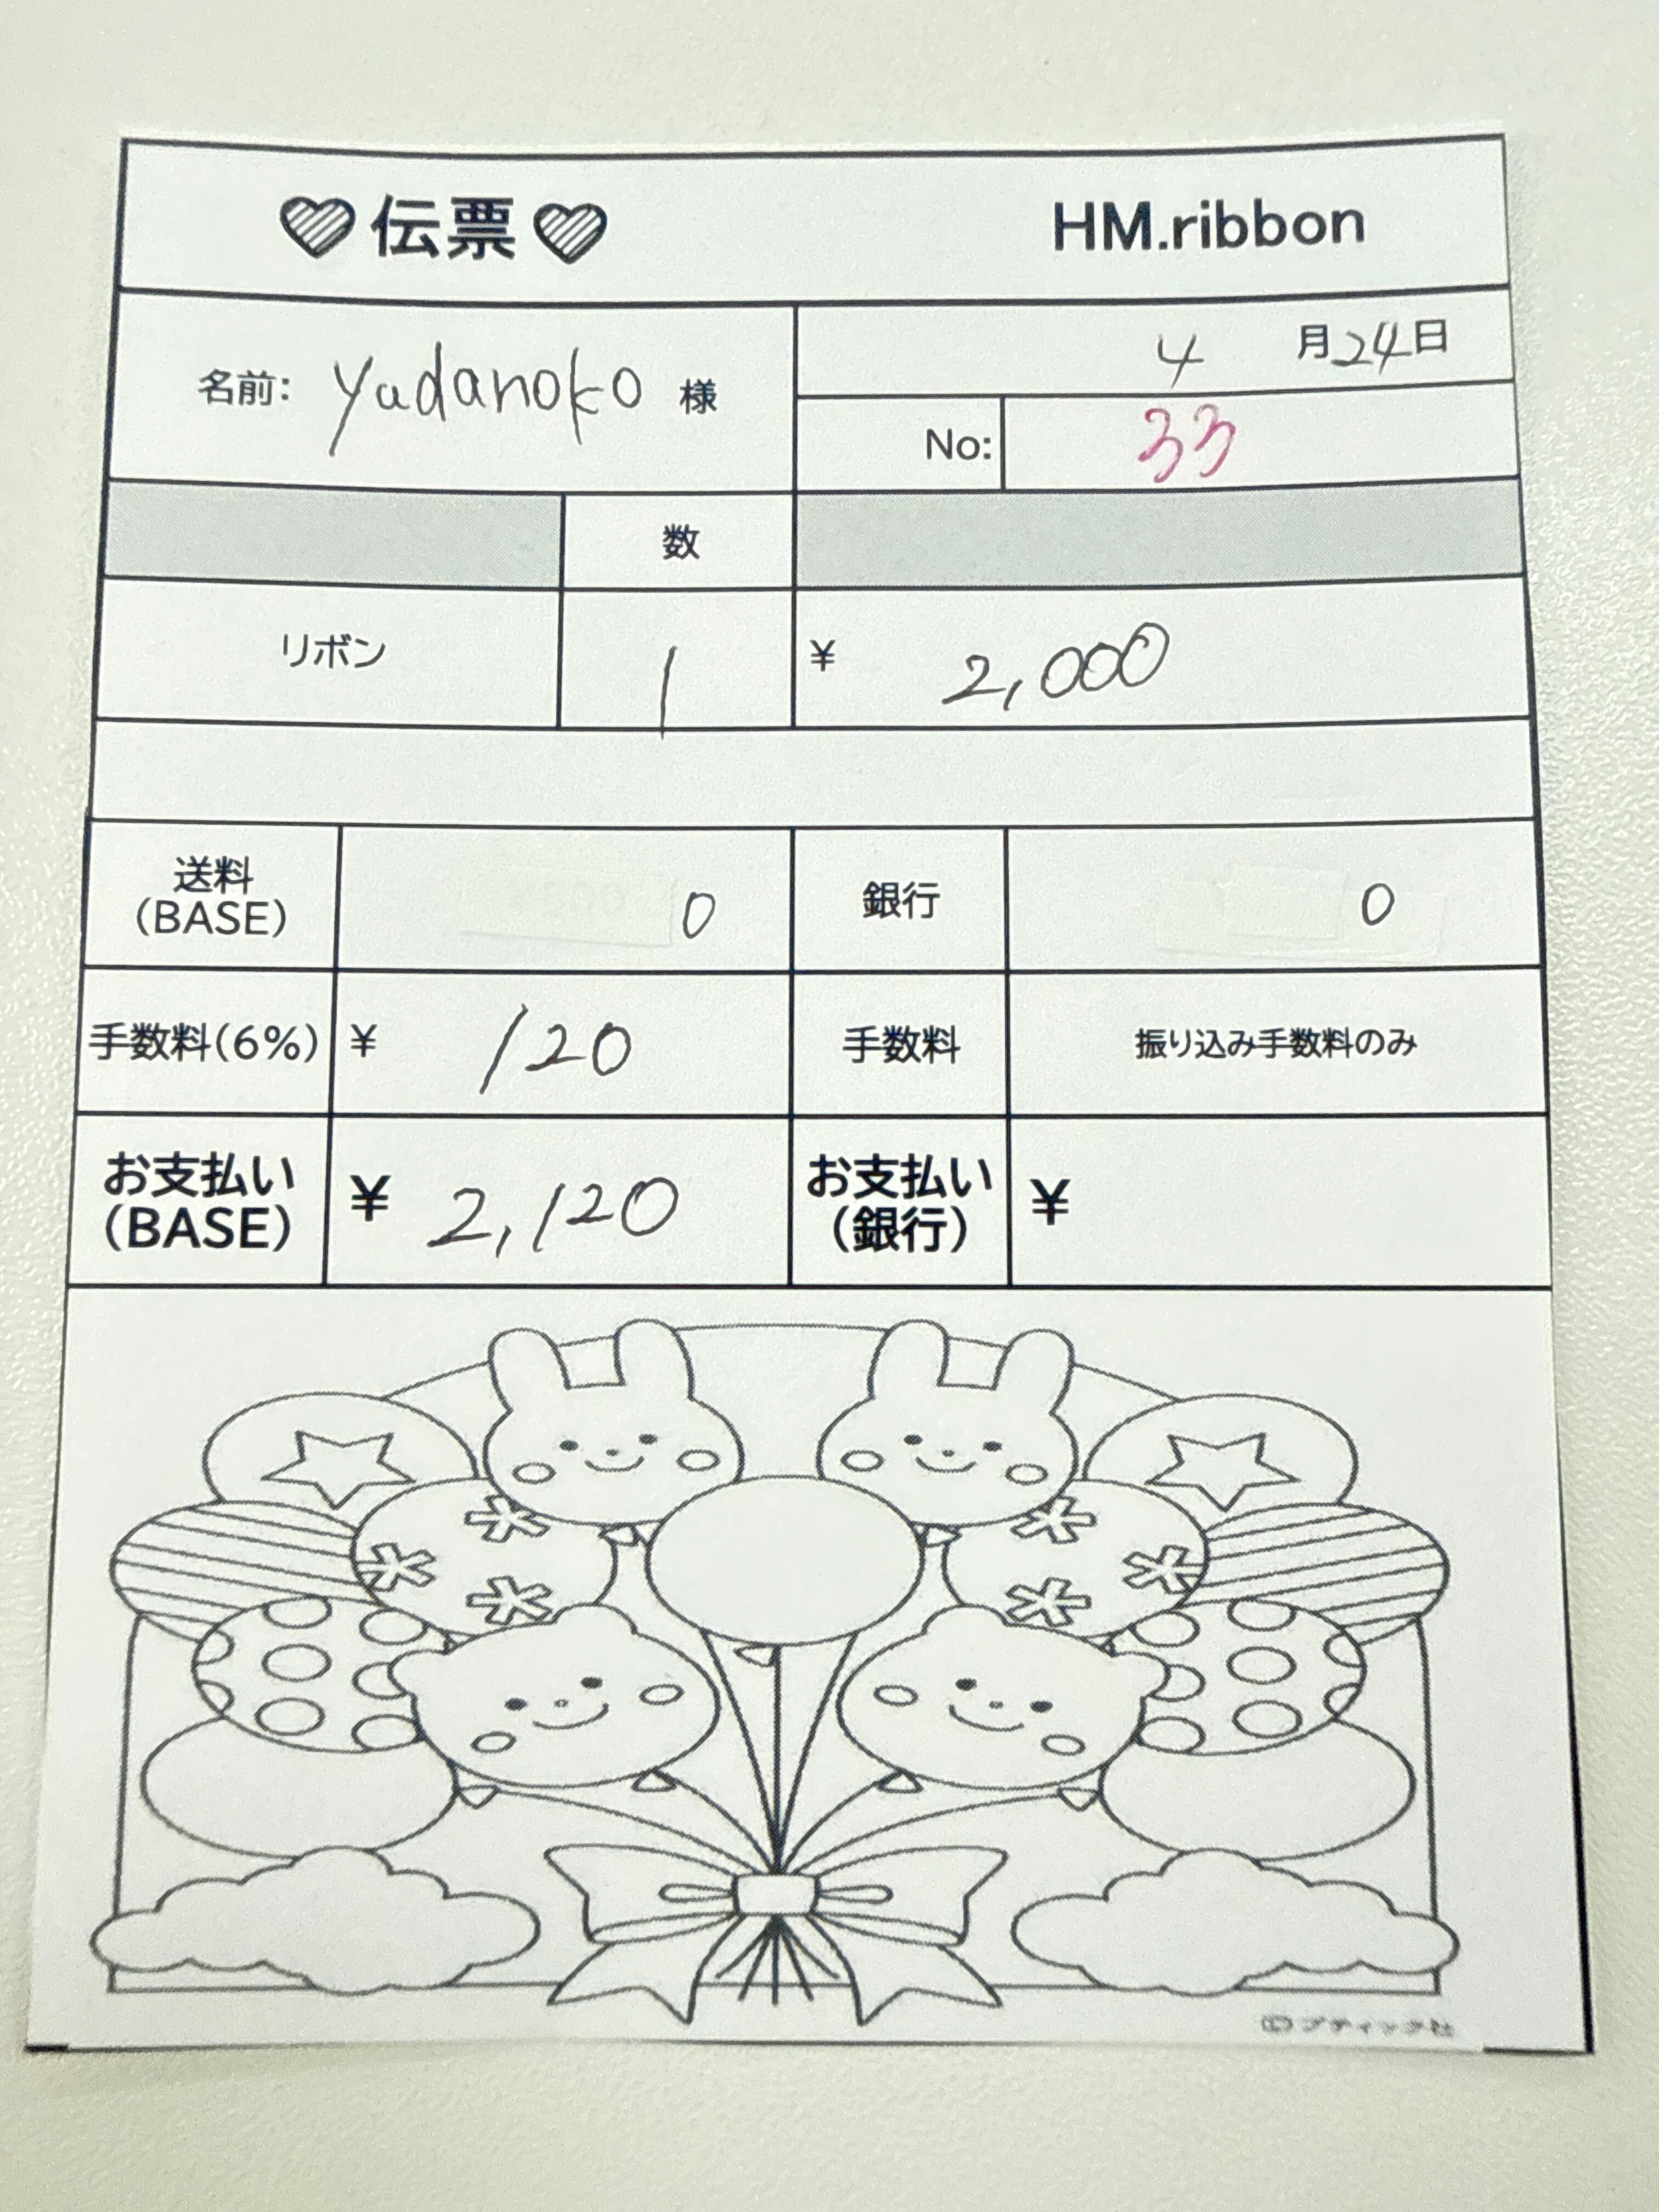 伝票 HM.ribbon
名前: yudanoko 様
4 月 24 日
No: 33
数
リボン 1 ¥ 2,000
送料
(BASE) 0 銀行 0
手数料(6%) ¥ 120 手数料 振り込み手数料のみ
お支払い
(BASE) ¥ 2,120 お支払い
(銀行) ¥
©ブティック社